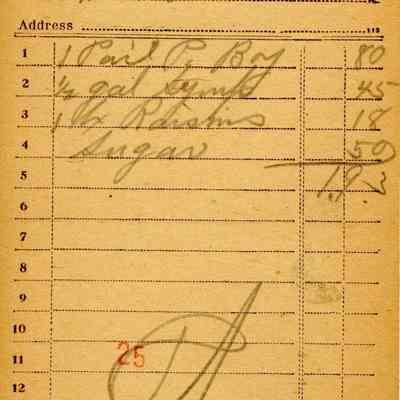 Address
1 1 Pail P. Boy 80
2 ½ gal Syrup 45
3 1 lx Raisins 18
4 Sugar 50
5 1.93
6
7
8
9
10
11 25
12